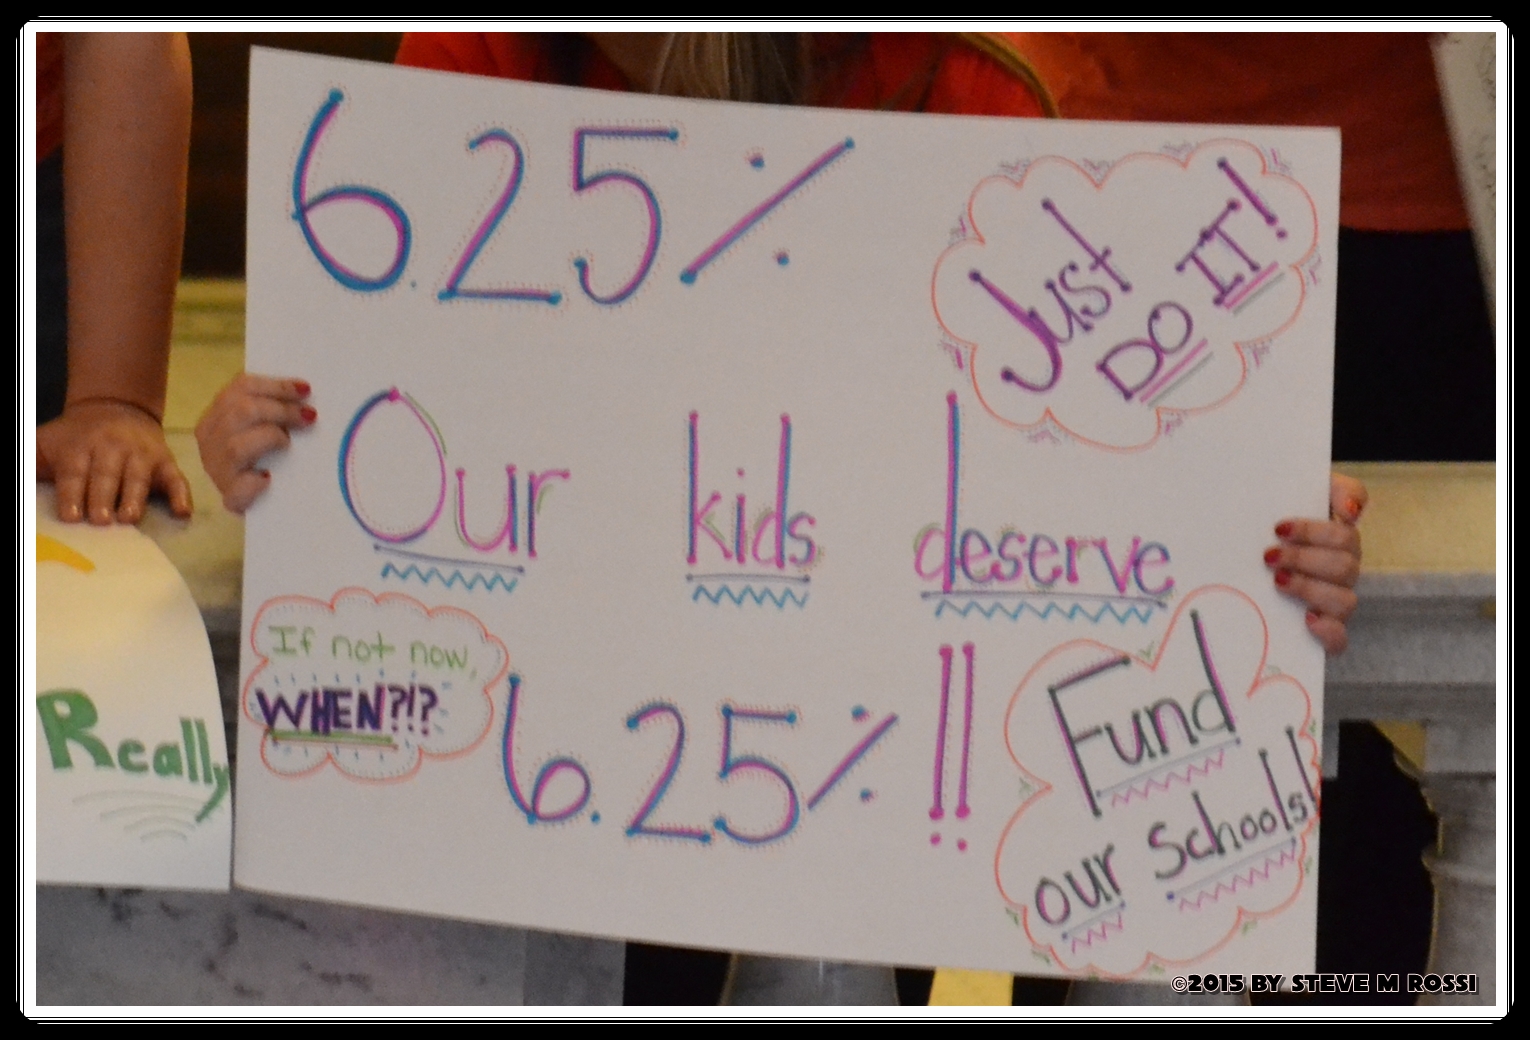 6.25%
Just
DO IT!
Our kids deserve
If not now,
WHEN?!?
6.25%!!
Fund
our Schools!
Really
©2015 BY STEVE M ROSSI